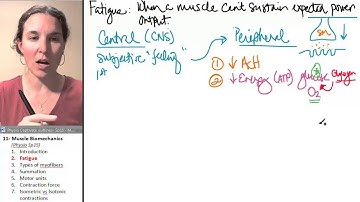 Fatigue: When a muscle cant sustain expected power
output.
Central (CNS)
Peripheral
SM
↓
subjective "feeling"
1st
① ↓ ACh
② ↓ Energy (ATP) glucose
Glycogen
O2
11- Muscle Biomechanics
(Physio Sp15)
1. Introduction
2. Fatigue
3. Types of myofibers
4. Summation
5. Motor units
6. Contraction force
7. Isometric vs Isotonic
contractions